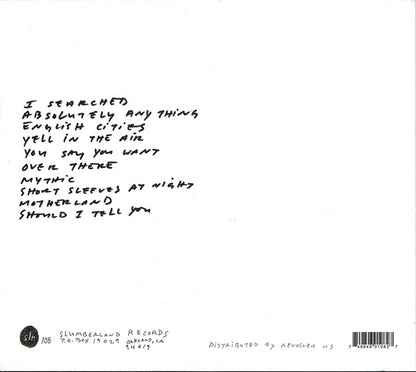 I SEARCHED
ABSOLUTELY ANYTHING
ENGLISH CITIES
YELL IN THE AIR
YOU SAY YOU WANT
OVER THERE
MYTHIC
SHORT SLEEVES AT NIGHT
MOTHERLAND
SHOULD I TELL YOU
slr /108
SLUMBERLAND RECORDS
P.O. BOX 19029 OAKLAND, CA
94619
DISTRIBUTED by REVOLVER US
7 49846 01082 7